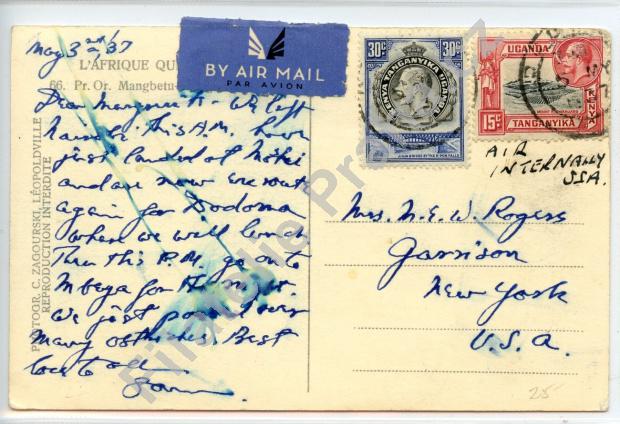 May 3rd/37
L'AFRIQUE QU
66. Pr. Or. Mangbetu-
BY AIR MAIL
PAR AVION
Dear Marguerite - We left
Nairobi this A.M. have
just landed at Moshi
and are now en route
again for Dodoma
where we will lunch
Then this P.M. go on to
Mbeya for the night.
We just passed over
many ostriches. Best
love to all
PHOTOGR. C. ZAGOURSKI, LÉOPOLDVILLE
REPRODUCTION INTERDITE
30c 30c
KENYA TANGANYIKA UGANDA
UGANDA
KENYA
15c
TANGANYIKA
AIR
INTERNALLY
Mrs. M. E. W. Rogers
Garrison
New York
U.S.A.
25
Filatelie Pra